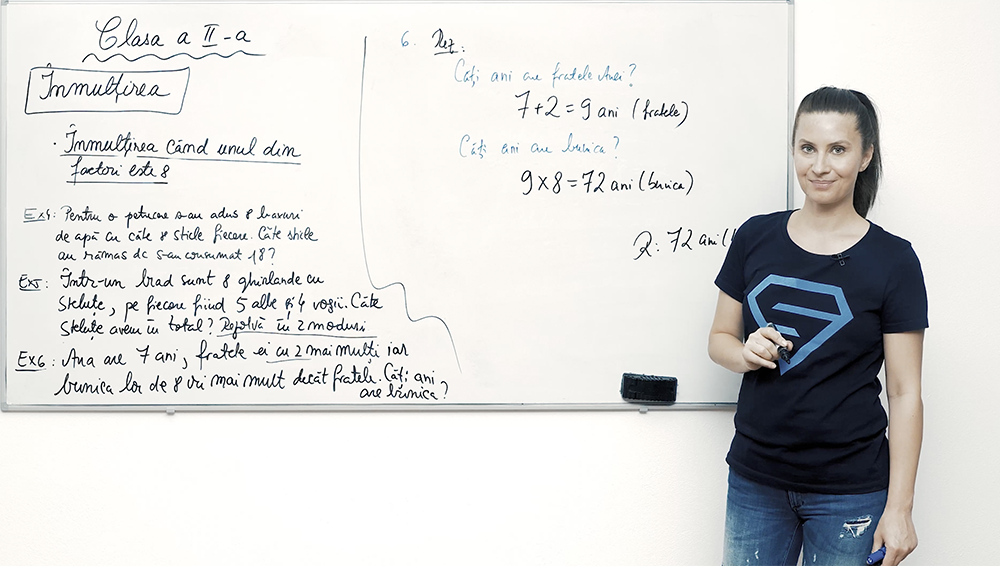 Clasa a II-a
Înmulțirea
· Înmulțirea când unul din
factori este 8
Ex4: Pentru o petrecere s-au adus 8 baxuri
de apă cu câte 8 sticle fiecare. Câte sticle
au rămas dc s-au consumat 18?
Ex5: Într-un brad sunt 8 ghirlande cu
steluțe, pe fiecare fiind 5 albe și 4 roșii. Câte
steluțe avem în total? Rezolvă în 2 moduri
Ex6: Ana are 7 ani, fratele ei cu 2 mai mulți iar
bunica lor de 8 ori mai mult decât fratele. Câți ani
are bunica?
6. Rez:
Câți ani are fratele Anei?
7+2=9 ani (fratele)
Câți ani are bunica?
9x8=72 ani (bunica)
R: 72 ani (